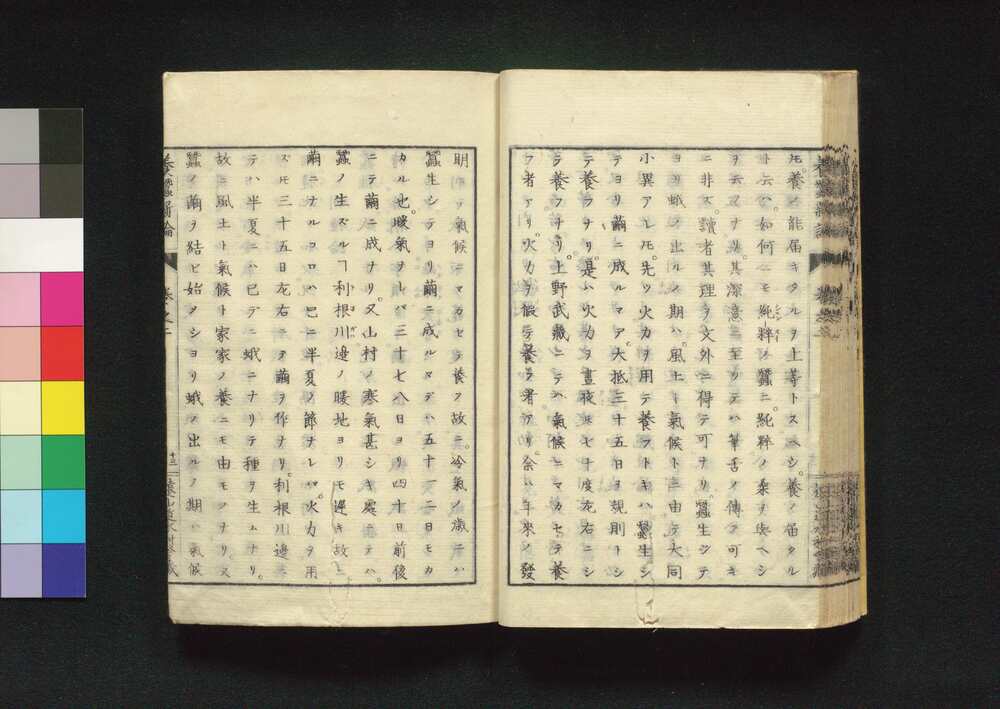 ㇳモ養ノ能届キタルヲ上等トスヘシ。養ノ届タル
ト云ハ。如何ニモ純粹ノ蠶ニ。純粹ノ桑ヲ與ヘシ
ヲ云フナリ。其深意ニ至リテハ筆舌ノ傳フ可キ
ニ非ス。讀者其理ヲ文外ニ得テ可ナリ。蠶生シテ
ヨリ蛾ノ出ルノ期ハ。風土ト氣候トニ由テ大同
小異アレㇳモ。先ツ火力ヲ用テ養フトキハ蠶生シ
テヨリ繭ニ成ルマデ。大抵三十五日ヲ規則トシ
テ養ヲナリ。是ハ火力ヲ晝夜ㇳモ七十度左右ニシ
ラ養フナリ。上野武藏ニテハ。氣候ニマカセテ養
フ者アリ。火力ヲ假テ養ヲ者アリ。余ハ年來ノ發
明ニテ氣候ニマカセテ養フ故ニ。冷氣ノ歳ニハ
蠶生シテヨリ繭ニ成ルマデハ五十一二日モカ
カル也。暖氣ヲレバ三十七八日ヨリ四十日前後
ニテ繭ニ成ナリ。又山村ノ寒氣甚シキ處ニテハ。
蠶ノ生ズルヿ利根川邉ノ暖地ヨリモ遲キ故ニ
繭ニナルコロハ已ニ半夏ノ節ナレバ。火力ヲ用
ズㇳモ三十五日左右ニテ繭ヲ作ナリ。利根川邉ニ
テハ半夏ニハ已デニ蛾ニナリテ種ヲ生ムナリ。
故ニ風土ト氣候ト家家ノ養ニモ由モノナリ。又
蠶ノ繭ヲ結ビ始メシヨリ蛾ノ出ルノ期ハ氣候
養蠶新論 卷之二 十三